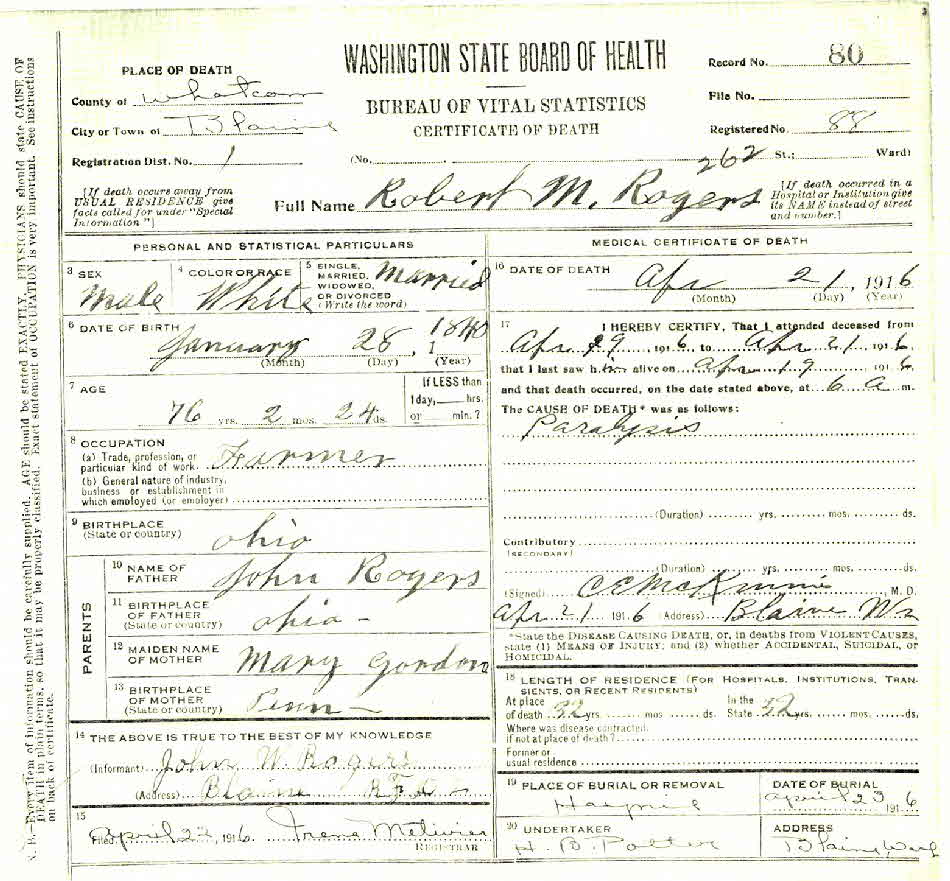 WASHINGTON STATE BOARD OF HEALTH
BUREAU OF VITAL STATISTICS
CERTIFICATE OF DEATH
PLACE OF DEATH
County of Whatcom
City or Town of Blaine
Registration Dist. No. 1
Record No. 80
File No.
Registered No. 88
(No. 262 St.; Ward)
[If death occurs away from
USUAL RESIDENCE give
facts called for under "Special
Information"]
Full Name Robert M. Rogers
[If death occurred in a
Hospital or Institution give
its NAME instead of street
and number.]
PERSONAL AND STATISTICAL PARTICULARS
3 SEX
Male
4 COLOR OR RACE
White
5 SINGLE,
MARRIED,
WIDOWED,
OR DIVORCED
(Write the word)
Married
6 DATE OF BIRTH
January 28, 1 1840
(Month) (Day) (Year)
7 AGE
76 yrs. 2 mos. 24 ds.
If LESS than
1 day, hrs.
or min.?
8 OCCUPATION
(a) Trade, profession, or
particular kind of work Farmer
(b) General nature of industry,
business or establishment in
which employed (or employer)
9 BIRTHPLACE
(State or country) Ohio
PARENTS
10 NAME OF
FATHER John Rogers
11 BIRTHPLACE
OF FATHER
(State or country) Ohio -
12 MAIDEN NAME
OF MOTHER Mary Gordon
13 BIRTHPLACE
OF MOTHER
(State or country) Penn -
14 THE ABOVE IS TRUE TO THE BEST OF MY KNOWLEDGE
(Informant) John W. Rogers
(Address) Blaine
15
Filed April 22, 1916 Irene
REGISTRAR
MEDICAL CERTIFICATE OF DEATH
16 DATE OF DEATH
Apr 21, 1916
(Month) (Day) (Year)
17 I HEREBY CERTIFY, That I attended deceased from
Apr 1916 to Apr 21 1916
that I last saw him alive on Apr 19 1916
and that death occurred, on the date stated above, at 6 a m.
The CAUSE OF DEATH* was as follows:
Paralysis
(Duration) yrs. mos. ds.
Contributory
(SECONDARY)
(Duration) yrs. mos. ds.
(Signed) M.D.
Apr 21 1916 (Address) Blaine Wn
*State the DISEASE CAUSING DEATH, or, in deaths from VIOLENT CAUSES,
state (1) MEANS OF INJURY; and (2) whether ACCIDENTAL, SUICIDAL, or
HOMICIDAL.
18 LENGTH OF RESIDENCE (FOR HOSPITALS, INSTITUTIONS, TRAN-
SIENTS, OR RECENT RESIDENTS)
At place In the
of death yrs. mos ds. State yrs. mos. ds.
Where was disease contracted,
if not at place of death?
Former or
usual residence
19 PLACE OF BURIAL OR REMOVAL
DATE OF BURIAL
April 23 1916
20 UNDERTAKER
H. B. Potter
ADDRESS
Blaine Wash
N. B.—Every item of information should be carefully supplied. AGE should be stated EXACTLY. PHYSICIANS should state CAUSE OF
DEATH in plain terms, so that it may be properly classified. Exact statement of OCCUPATION is very important. See instructions
on back of certificate.